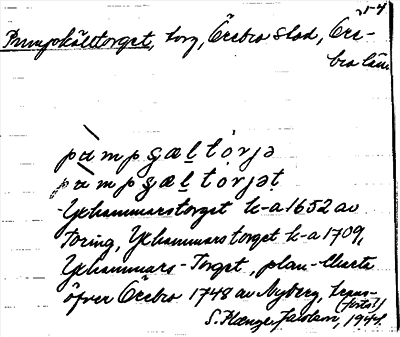 5-4
Pumpkälltorget, torg, Örebro stad, Öre-
bro län
pùmpʂæḷtȯrjə
pùmpʂæḷtȯrjəṭ
Yxhammarstorget k-a 1652 av
Toring, Yxhammarstorget k-a 1709,
Yxhammars-Torget, plan-Charta
öfver Örebro 1748 av Nyberg, trans-
S. Jacobson, 1944.